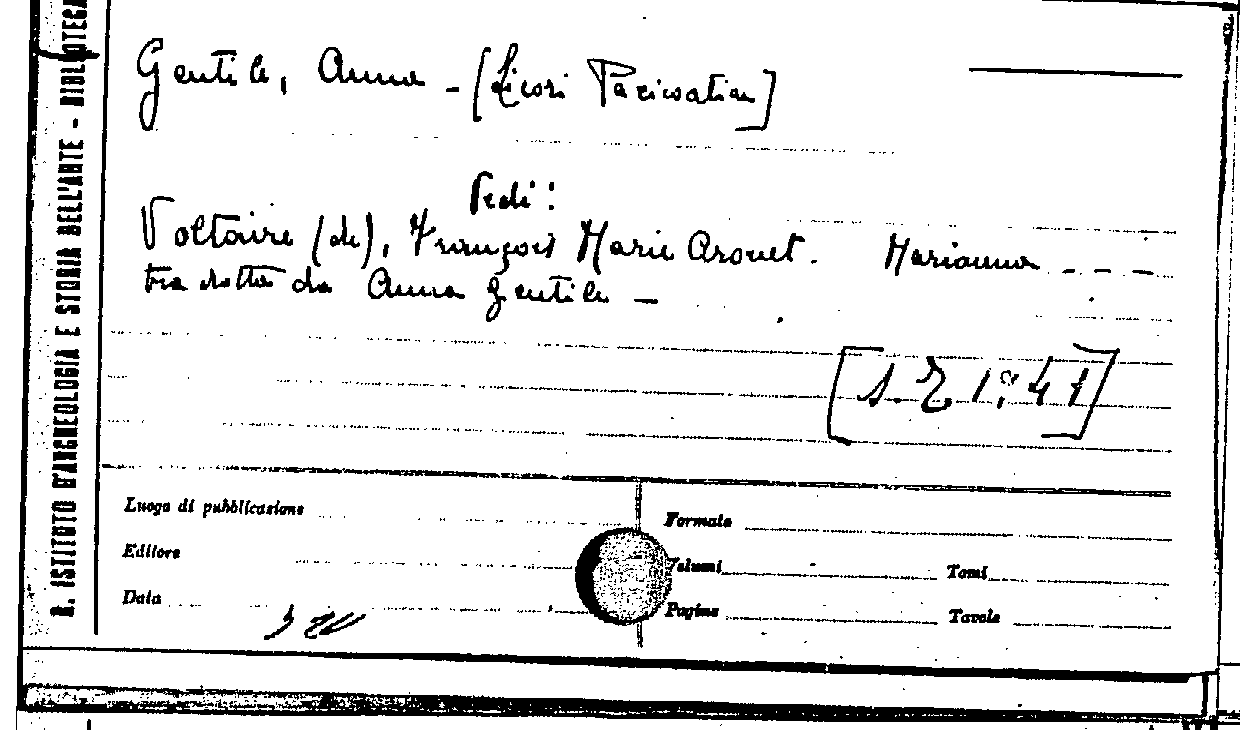 R. ISTITUTO D'ARCHEOLOGIA E STORIA DELL'ARTE - BIBLIOTECA
Gentile, Anna - [Licori Parteniate]
Vedi:
Voltaire (de), François Marie Arouet. Marianna - - -
tradotta da Anna Gentile -
Luogo di pubblicazione
Formato
Editore
Volumi
Tomi
Data
Pagine
Tavole